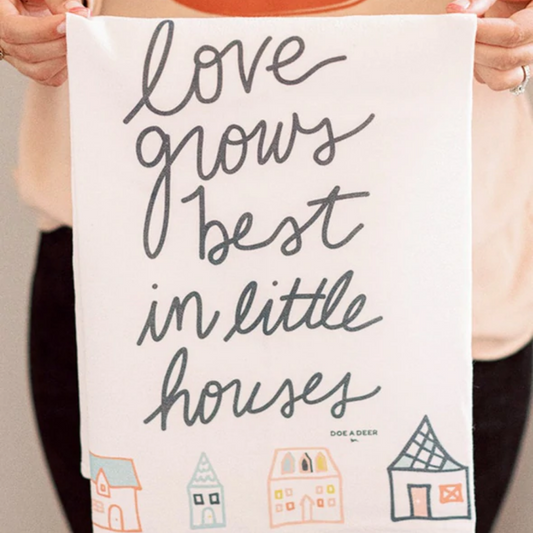 love
grows
best
in little
houses
DOE A DEER